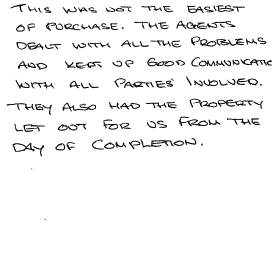 THIS WAS NOT THE EASIEST
OF PURCHASE. THE AGENTS
DEALT WITH ALL THE PROBLEMS
AND KEPT UP GOOD COMMUNICATIO
WITH ALL PARTIES INVOLVED.
THEY ALSO HAD THE PROPERTY
LET OUT FOR US FROM THE
DAY OF COMPLETION.